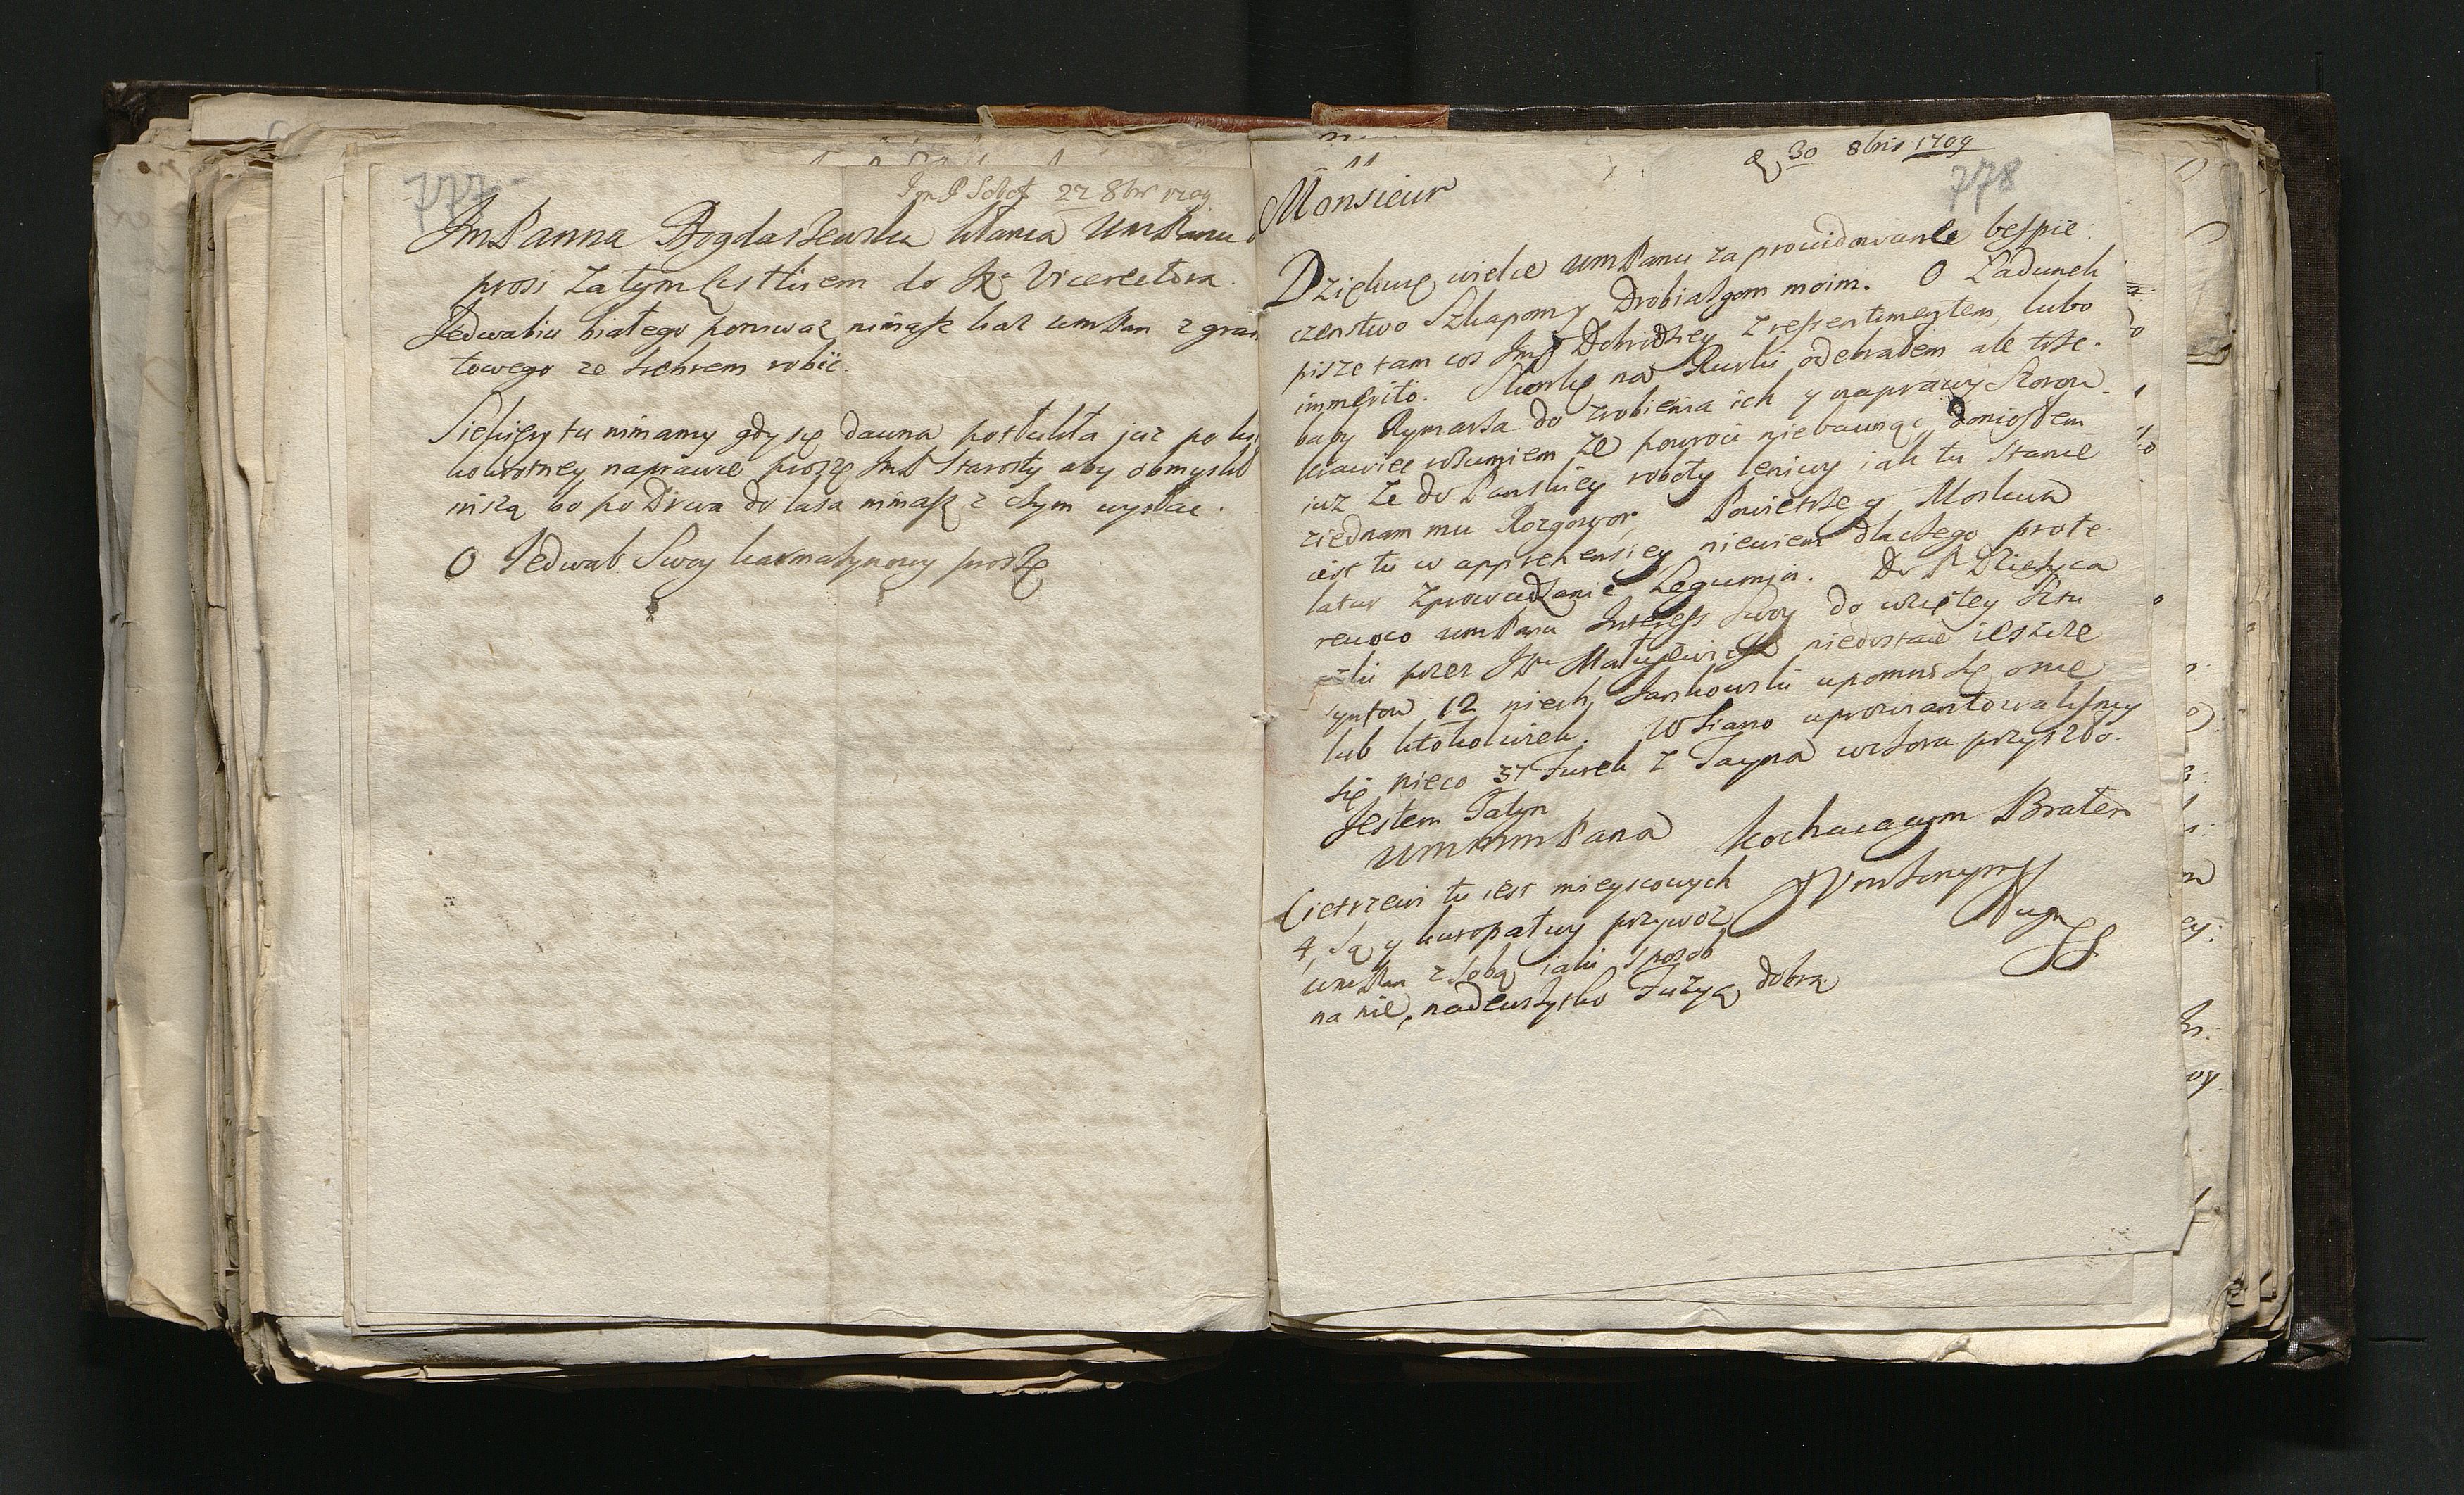 777
ImP 27 8br 1709
JmPanna Bogdaszewska kłania UmPanu
prosi za tym listkiem do Vicerektora.
Jedwabiu białego poniewaz nimasz każ umPan z gran
towego ze srebrem robić.
Siekiery tu nimamy gdy się dawna potłukła już po
kokrotney naprawie proszę JmP Starosty aby obmyslił
inszą bo po Drwa do lasa nimasz z czym wysłac.
O Jedwab Swoy karmazynowy proszę
30 8bris 1709
778
Monsieur
Dziękuję wielce umPanu za prowidowanie bespie:
czenstwo Szkapom y Drobiazgom moim. O Ładunek
pisze tam cos JmP Dobrodzicy z ressentimentem, lubo
immerito. Skorkę na Kurki odebrałem ale trze.
baby Rymarza do zrobienia ich y naprawy
krawiec rozumiem ze powroci niebawiąc, doniosłem
iuz ze do Panskiey roboty leniwy iak tu stanie
ziednam mu Rozgowor. Powietrze y Moskwa
iest tu w apprehensiey niewiem dlaczego prote
latur zprowadzanie Legumin. Do P
revoco umPanu Interess Swoy do wziętey
przez Matusewicza niedostaie ieszcze
12 niech Jankowski upomni się one
lub ktokolwiek. W Siano uprowiantowalismy
się nieco 37 Furek z Tayna wczora przyszło.
Jestem Zatym
UmmmPana kochaiącym Bratem
Cietrzewi tu iest mieyscowych
4, są y kuropatwy przywoz
umPan z sobą iaki sposob
na nie, nadewszysko Fuzyą dobrą